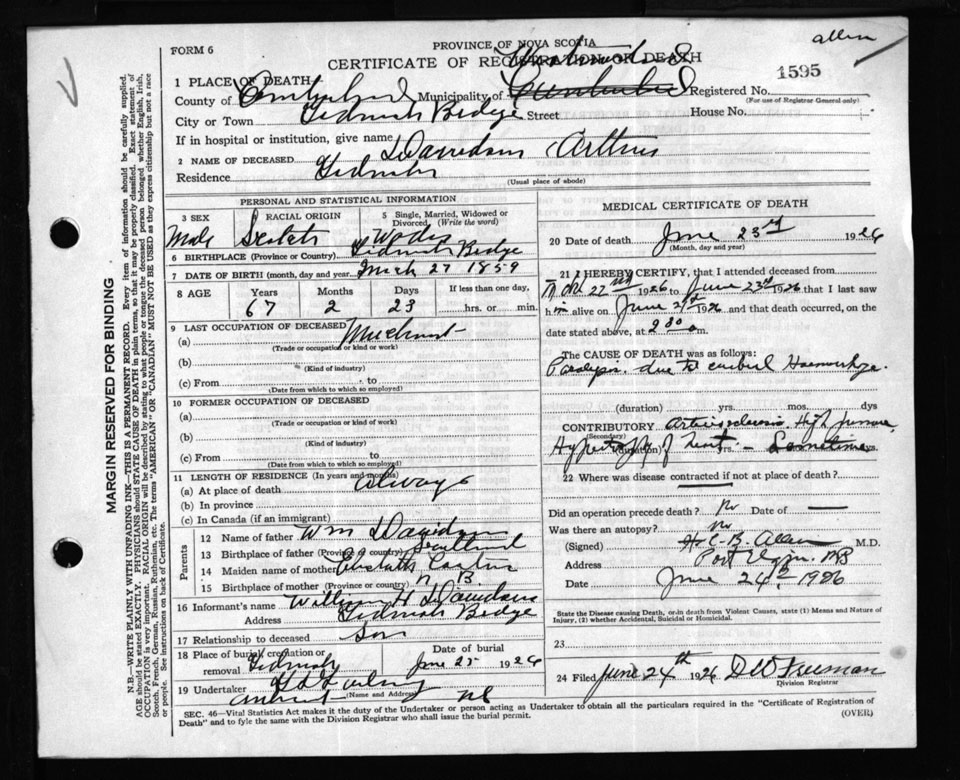 allen
FORM 6
PROVINCE OF NOVA SCOTIA
CERTIFICATE OF REGISTRATION OF DEATH
1595
1 PLACE OF DEATH
County of Cumberland Municipality of Cumberland Registered No.
(For use of Registrar General only)
City or Town Tidnish Bridge Street House No.
If in hospital or institution, give name
2 NAME OF DECEASED Davidson Arthur
Residence Tidnish
(Usual place of abode)
PERSONAL AND STATISTICAL INFORMATION
3 SEX Male
RACIAL ORIGIN Scotch
5 Single, Married, Widowed or Divorced (Write the word)
6 BIRTHPLACE (Province or Country) Tidnish Bridge
7 DATE OF BIRTH (month, day and year) 27 1859
8 AGE Years Months Days If less than one day,
67 2 23 hrs. or min.
9 LAST OCCUPATION OF DECEASED
(a) Merchant
(Trade or occupation or kind of work)
(b)
(Kind of industry)
(c) From to
(Date from which to which so employed)
10 FORMER OCCUPATION OF DECEASED
(a)
(Trade or occupation or kind of work)
(b)
(Kind of industry)
(c) From to
(Date from which to which so employed)
11 LENGTH OF RESIDENCE (In years and months)
(a) At place of death always
(b) In province
(c) In Canada (if an immigrant)
Parents
12 Name of father Wm Davidson
13 Birthplace of father (Province or country) Scotland
14 Maiden name of mother
15 Birthplace of mother (Province or country) N B
16 Informant's name William H Davidson
Address Tidnish Bridge
17 Relationship to deceased Son
18 Place of burial, cremation or removal Tidnish
Date of burial June 25 1926
19 Undertaker
(Name and Address)
Amherst NS
MEDICAL CERTIFICATE OF DEATH
20 Date of death June 23rd 1926
(Month, day and year)
21 I HEREBY CERTIFY, that I attended deceased from
1926 to June 23rd 1926 that I last saw
him alive on June 1926 and that death occurred, on the
date stated above, at 2 30 a m.
The CAUSE OF DEATH was as follows:
Paralysis due to cerebral Haemorrhage
(duration) yrs. mos. dys
CONTRIBUTORY Arteriosclerosis High pressure
(Secondary)
Hypertrophy of heart (duration) yrs. - Sometime dys.
22 Where was disease contracted if not at place of death?
Did an operation precede death? No Date of
Was there an autopsy? No
(Signed) H. C. B. Allen M.D.
Address Port Elgin NB
Date June 24th 1926
State the Disease causing Death, or in death from Violent Causes, state (1) Means and Nature of Injury, (2) whether Accidental, Suicidal or Homicidal.
23
24 Filed June 24th 1926 D W Freeman
Division Registrar
SEC. 46—Vital Statistics Act makes it the duty of the Undertaker or person acting as Undertaker to obtain all the particulars required in the "Certificate of Registration of Death" and to fyle the same with the Division Registrar who shall issue the burial permit.
(OVER)
MARGIN RESERVED FOR BINDING
N.B.—WRITE PLAINLY WITH UNFADING INK—THIS IS A PERMANENT RECORD. Every item of information should be carefully supplied.
AGE should be stated EXACTLY. PHYSICIANS should STATE CAUSE OF DEATH in plain terms, so that it may be properly classified. Exact statement of
OCCUPATION is very important. RACIAL ORIGIN will be described by stating to what people or tongue the deceased person belonged whether English, Irish,
Scotch, French, German, Russian, Ruthenian, etc. The terms "AMERICAN" OR "CANADIAN" MUST NOT BE USED as they express citizenship but not a race
or people. See instructions on back of Certificate.